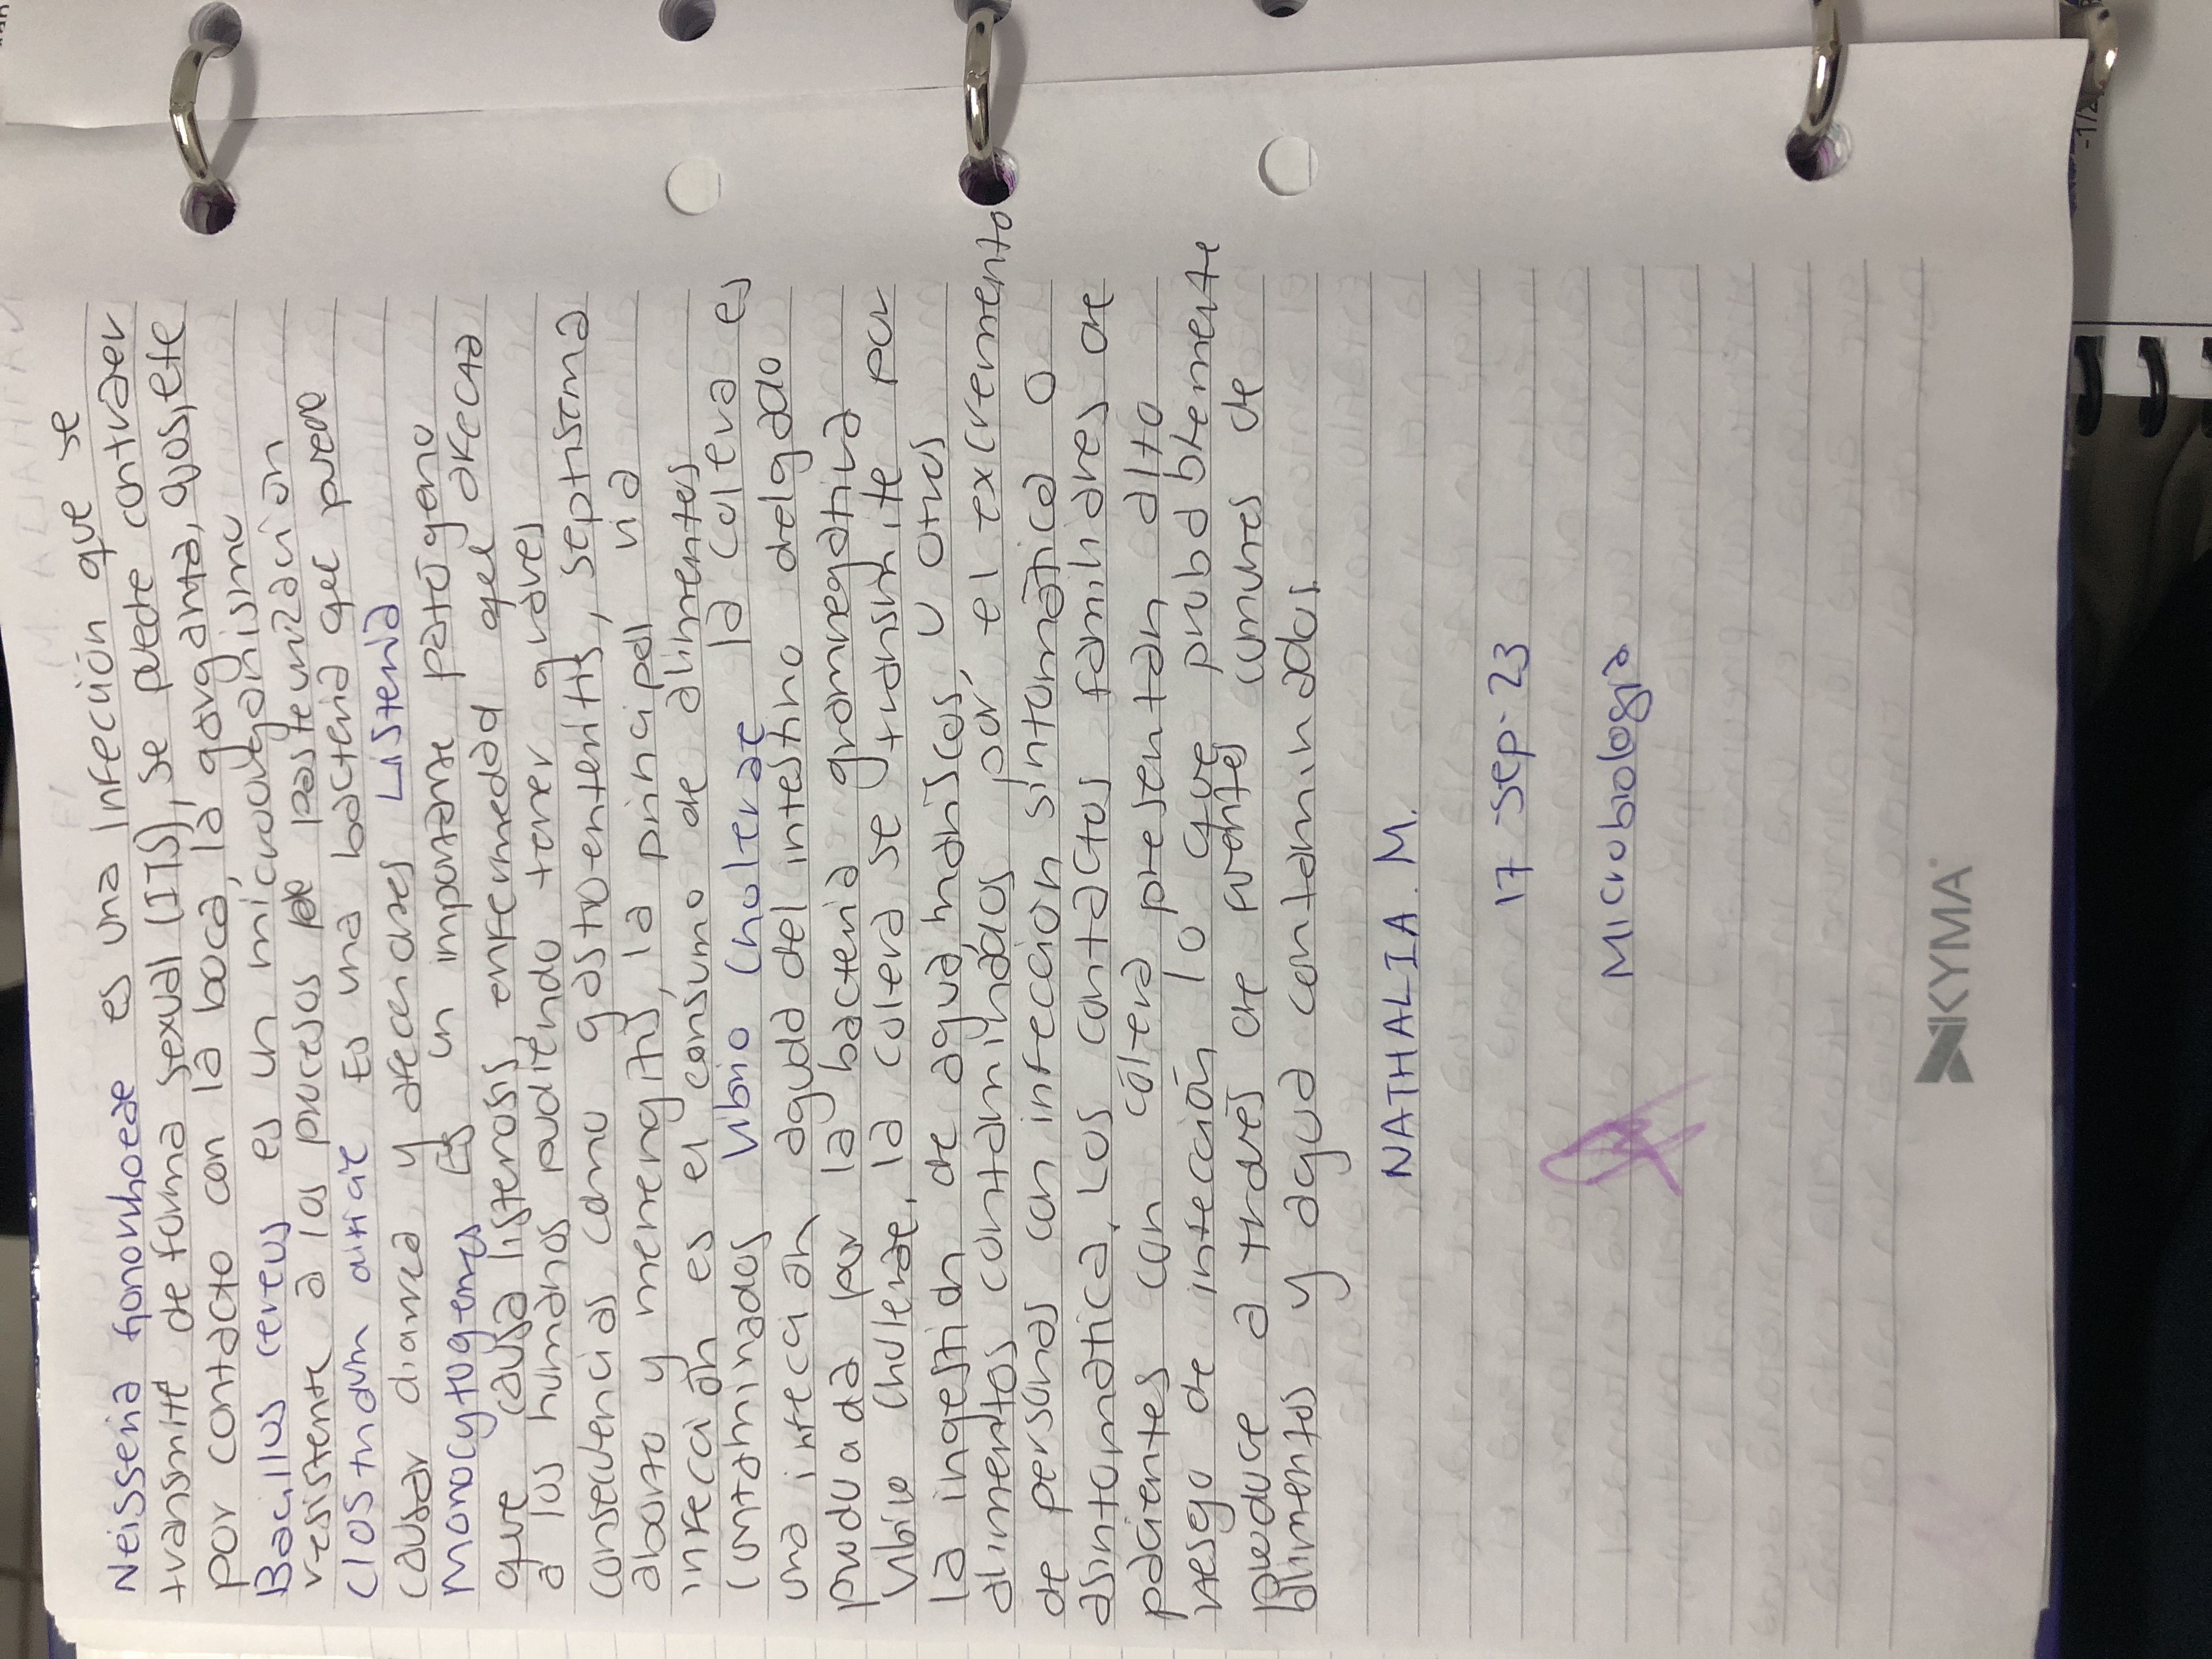 Neisseria gonorrhoeae es una infección que se
transmite de forma sexual (ITS), se puede contraer
por contacto con la boca, la garganta, ojos, ete
Bacillus cereus es un microorganismo
resistente a los procesos de pasteurización
Clostridium Es una bacteria que puede
causar diarrea y afecciones Listeria
monocytogenes Es un importante patógeno
que causa listeriosis, enfermedad que afecta
a los humanos pudiendo tener graves
consecuencias como gastroenteritis, septisema
aborto y meningitis, la principal via
infección es el consumo de alimentos
contaminados Vibrio Cholerae la colera es
una infección aguda del intestino delgado
producida por la bacteria gramnegativa
Vibrio Chulerae, la colera se transmite por
la ingestión de agua, mariscos, u otros
alimentos contaminados por, el excremento
de personas con infeccion sintomática o
asintomatica. Los contactos familiares de
pacientes con cólera presentan alto
riesgo de infección lo que probablemente
produce a través de fuentes comunes de
alimentos y agua contaminados.
NATHALIA. M.
17-Sep-23
Microbiologia
KYMA